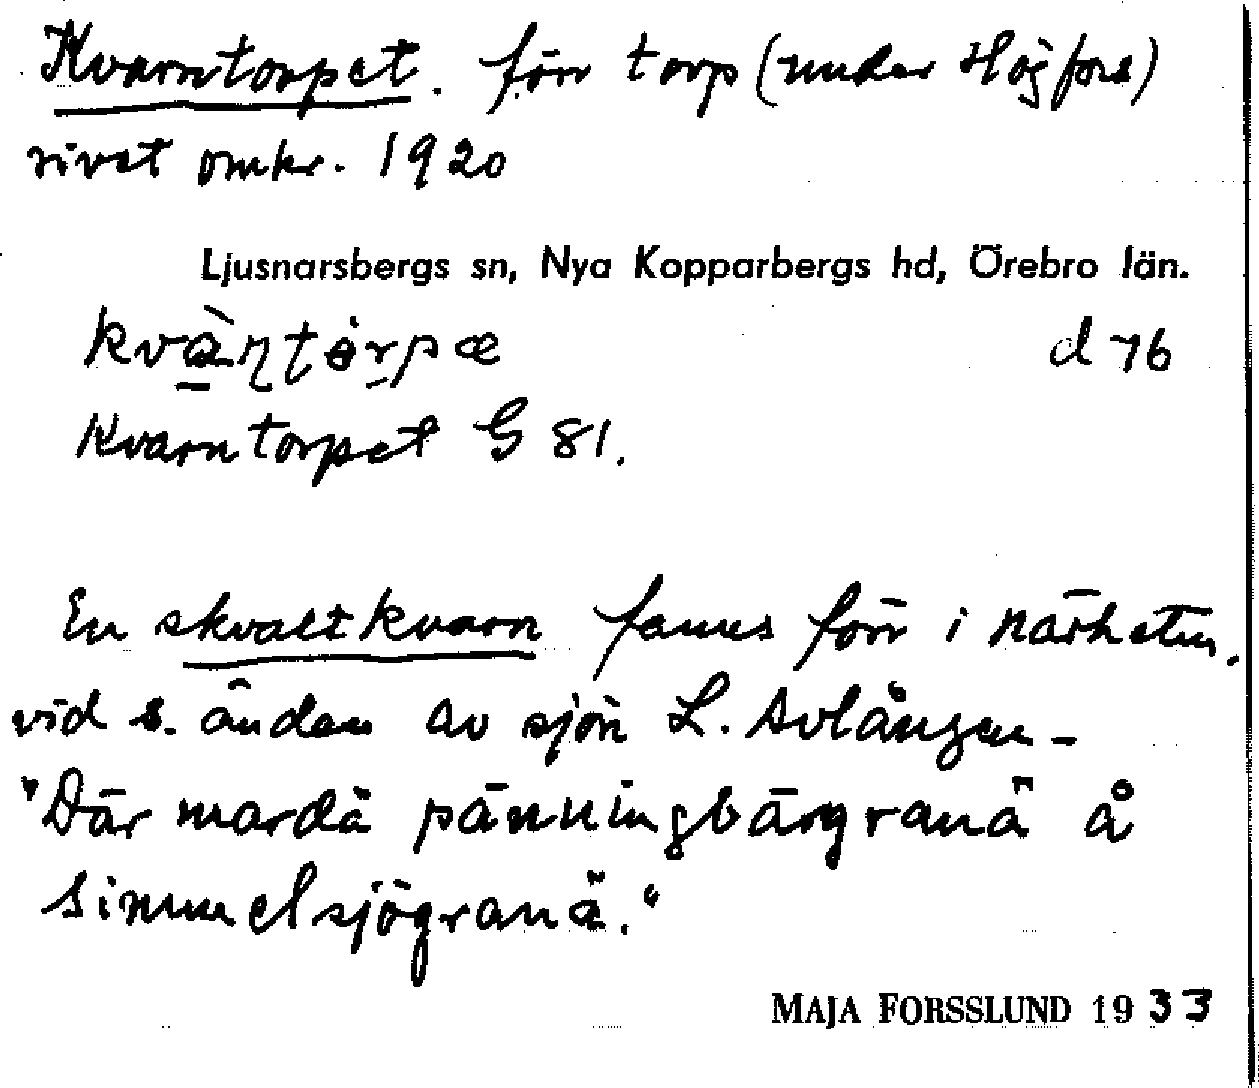 Kvarntorpet. förr torp (under Högfors)
rivet omkr. 1920
Ljusnarsbergs sn, Nya Kopparbergs hd, Örebro län.
kvàɳtórpæ d 76
Kvarntorpet G 81.
En skvaltkvarn fanns förr i närheten,
vid s. änden av sjön L. Avlången –
"Där mardä pänningbärgranä å
simmelsjögranä."
MAJA FORSSLUND 1933